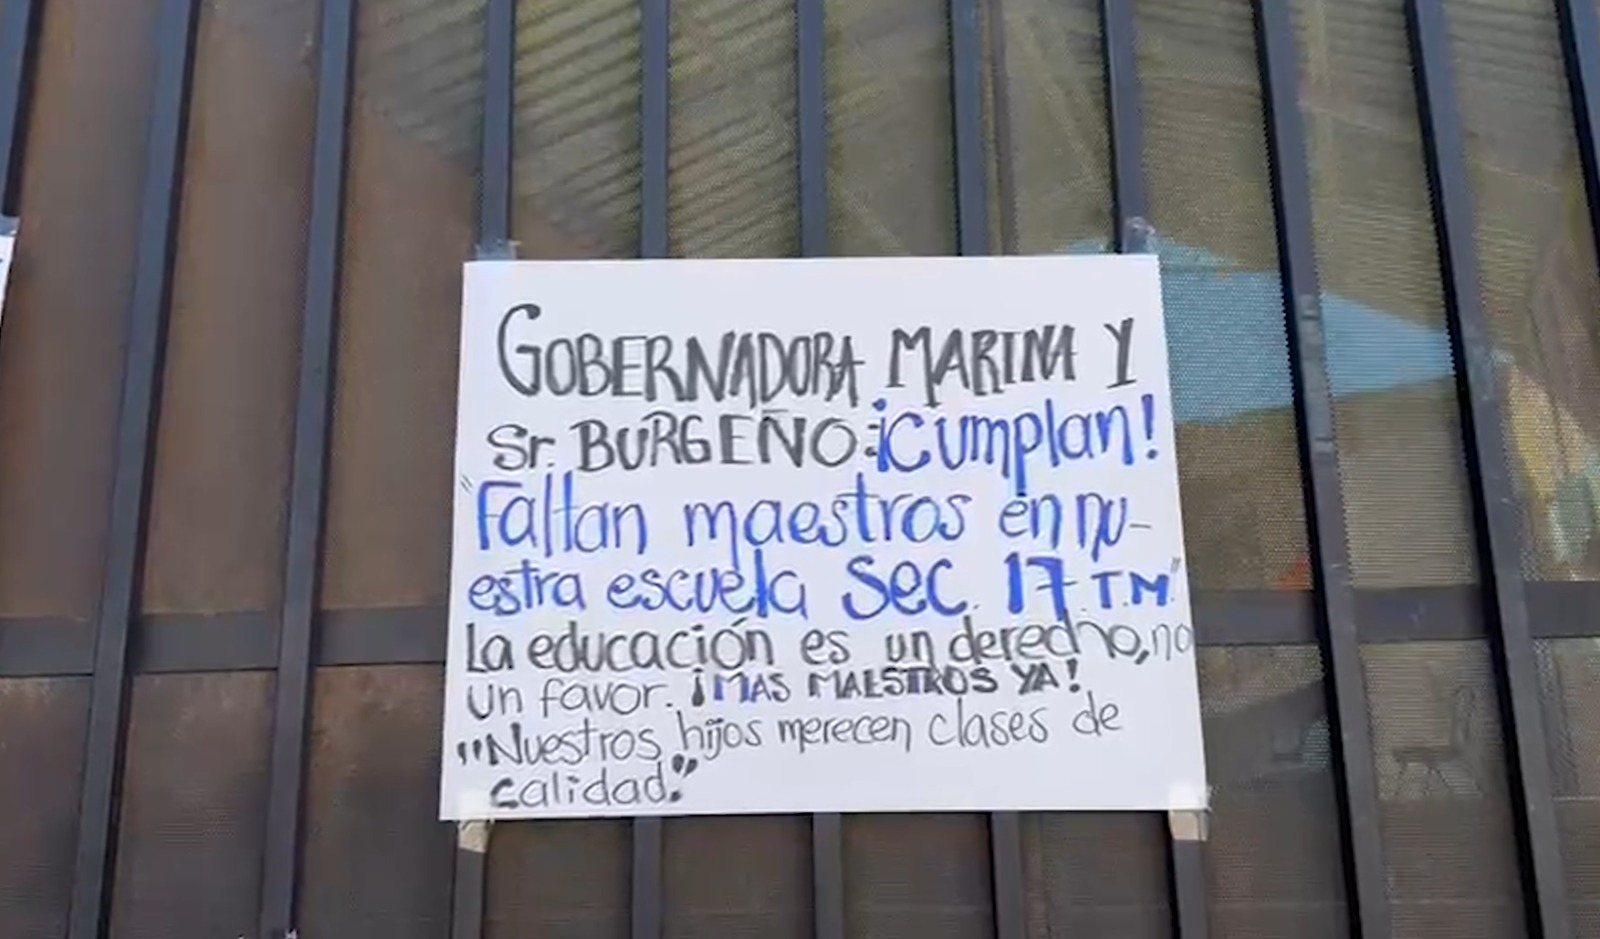 GOBERNADORA MARINA Y
Sr. BURGEÑO: ¡Cumplan!
"Faltan maestros en nu-
estra escuela Sec. 17 T.M."
La educación es un derecho, no
un favor. ¡MAS MAESTROS YA!
"Nuestros hijos merecen clases de
calidad."